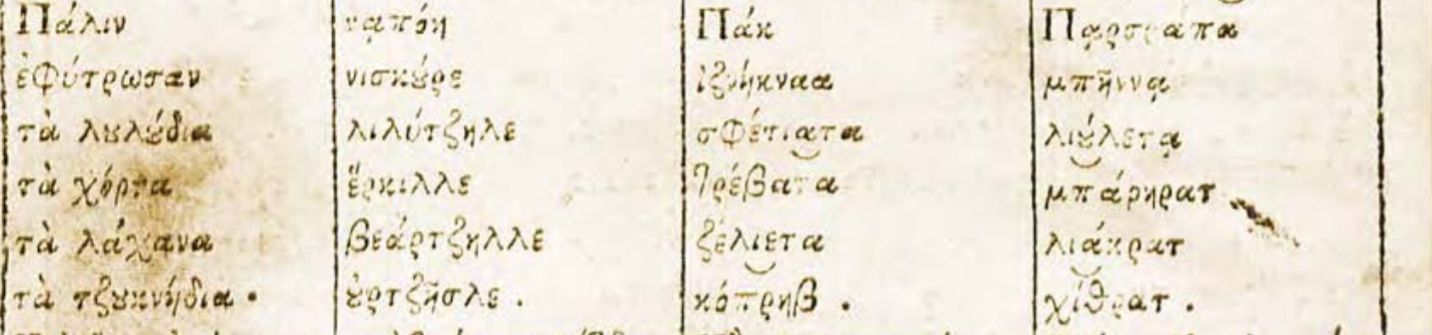 Πάλιν ραπόη Πάκ
ἐφύτρωσαν νισκȣ́ρε ἰζνήκναα μπῆννᾳ
τὰ λȣλȣ́δια λιλύτζηλε σφέτιατα λιȣ́λετᾳ
τὰ χόρτα ἔρκιλλε τρέβατα μπάρηρατ
τὰ λάχανα βεάρτζηλλε ζέλιετα λιάκρατ
τὰ τζȣκνήδια . ȣ̓ρτζῆσλε . κόπρηβ . χίθρατ .